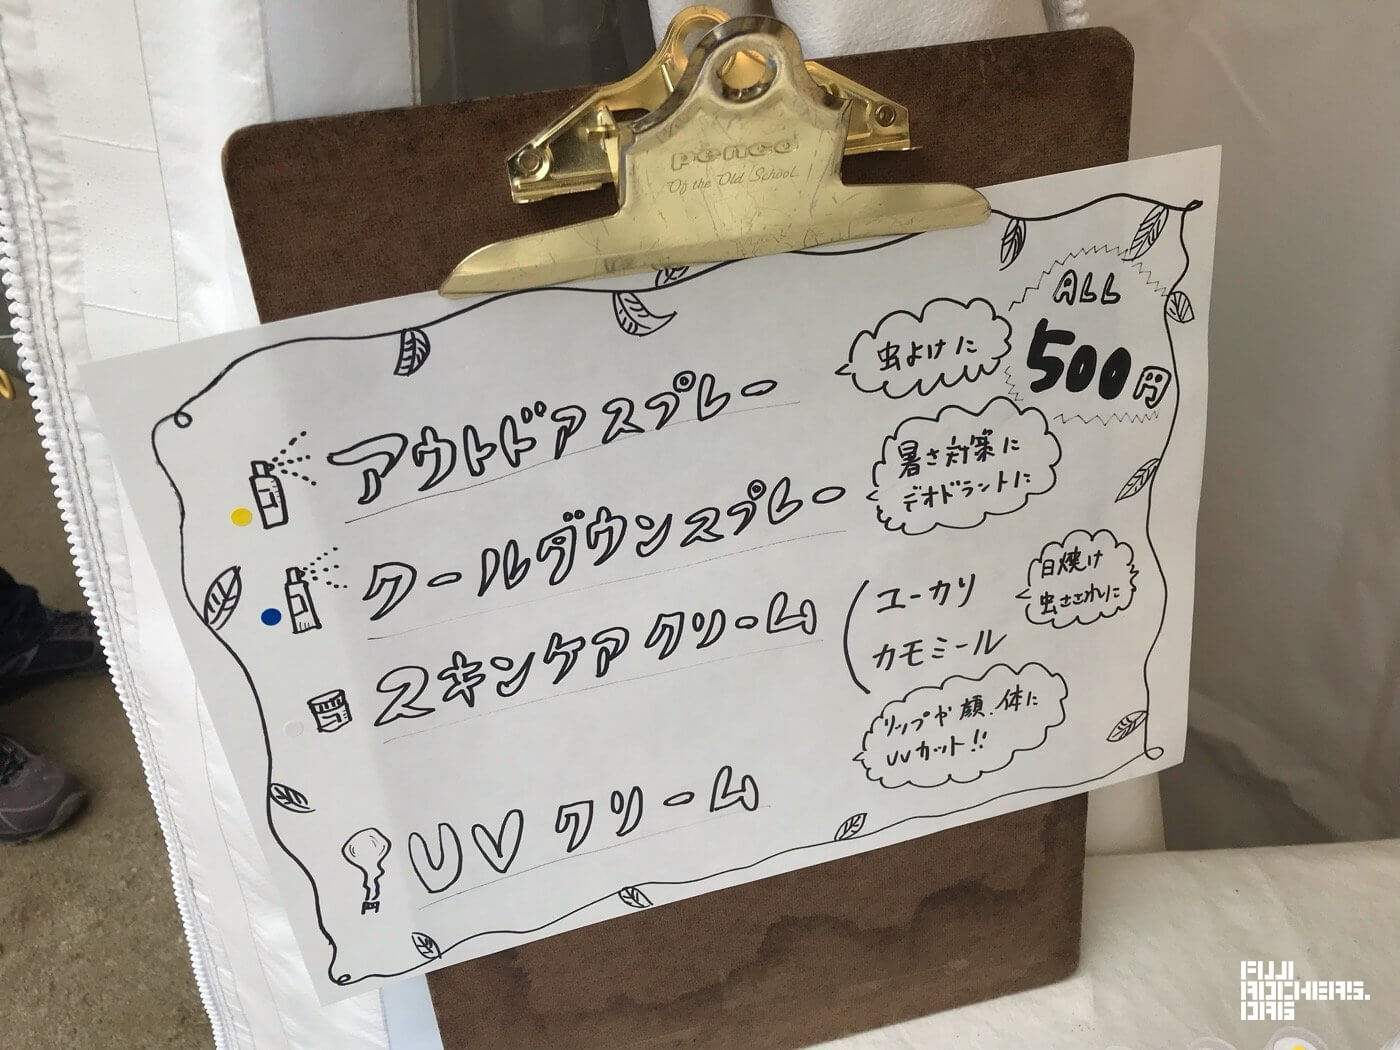 penco
Of the Old School
ALL
500円
アウトドアスプレー
虫よけに
クールダウンスプレー
暑さ対策に
デオドラントに
スキンケアクリーム
ユーカリ
カモミール
日焼け
虫さされに
UVクリーム
リップや顔、体に
UVカット!!
FUJI
ROCKERS.
ORG